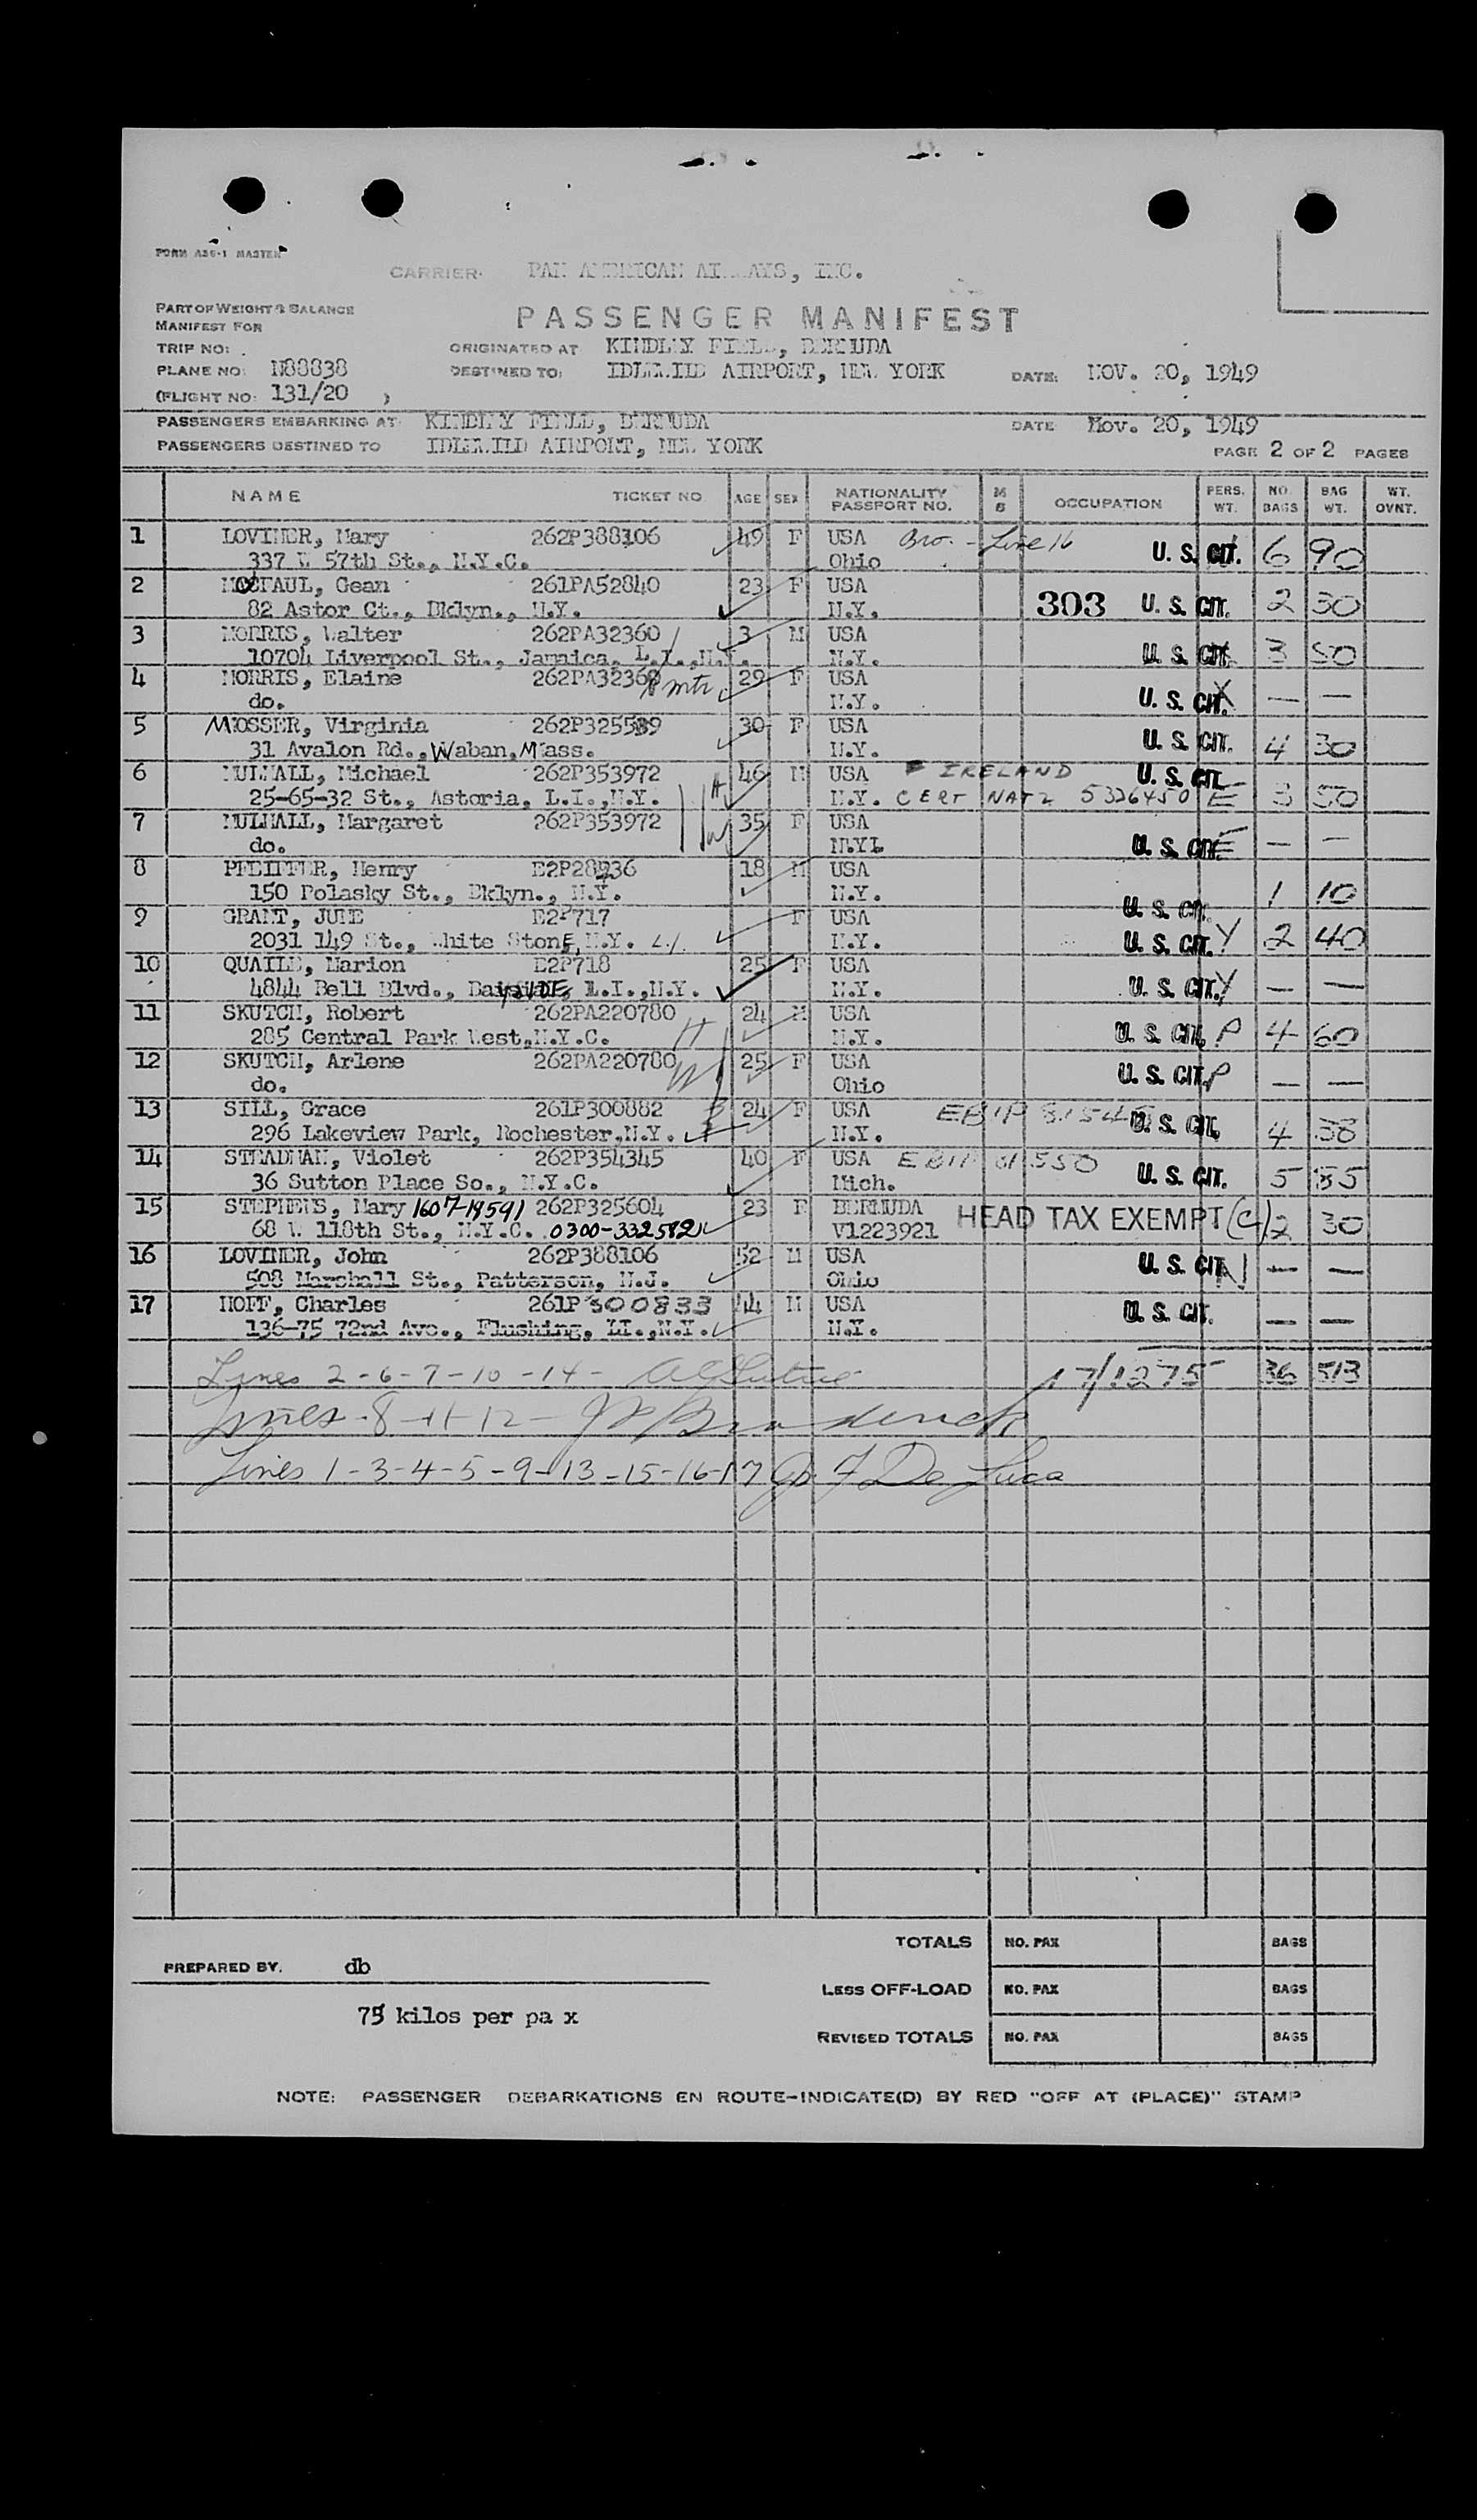 FORM A36-1 MASTER
CARRIER: PAN AMERICAN AIRWAYS, INC.
PART OF WEIGHT & BALANCE
MANIFEST FOR
PASSENGER MANIFEST
TRIP NO: ORIGINATED AT KINDLEY FIELD, BERMUDA
PLANE NO: N88838 DESTINED TO: IDLEWILD AIRPORT, NEW YORK DATE: NOV. 20, 1949
(FLIGHT NO: 131/20 )
PASSENGERS EMBARKING AT: KINDLEY FIELD, BERMUDA DATE Nov. 20, 1949
PASSENGERS DESTINED TO IDLEWILD AIRPORT, NEW YORK PAGE 2 OF 2 PAGES
NAME TICKET NO AGE SEX NATIONALITY PASSPORT NO. M S OCCUPATION PERS. WT. NO. BAGS BAG WT. WT. OVNT.
1 LOVINER, Mary 262P388106 49 F USA Bro. - Line 16 U. S. CIT. 6 90
337 W 57th St., N.Y.C. Ohio
2 McFAUL, Gean 261PA52840 23 F USA 303 U. S. CIT. 2 30
82 Astor Ct., Bklyn., N.Y. N.Y.
3 MORRIS, Walter 262PA32360 3 M USA U. S. CIT. 3 50
10704 Liverpool St., Jamaica, L.I., N.Y. N.Y.
4 MORRIS, Elaine 262PA32360 mtr 29 F USA U. S. CIT. — —
do. N.Y.
5 MOSSER, Virginia 262P325589 30 F USA U. S. CIT. 4 30
31 Avalon Rd., Waban, Mass. N.Y.
6 MULHALL, Michael 262P353972 H 46 M USA IRELAND U. S. CIT.
25-65-32 St., Astoria, L.I., N.Y. N.Y. CERT NATZ 5326450 E 3 50
7 MULHALL, Margaret 262P353972 W 35 F USA U. S. CIT. E — —
do. N.Y.
8 PFEIFFER, Henry E2P28936 18 M USA U. S. CIT. 1 10
150 Polasky St., Bklyn., N.Y. N.Y.
9 GRANT, JUNE E2P717 F USA U. S. CIT. Y 2 40
2031 149 St., White Stone, N.Y. L.I. N.Y.
10 QUAILE, Marion E2P718 25 F USA U. S. CIT. Y — —
4844 Bell Blvd., Bayside, L.I.,N.Y. N.Y.
11 SKUTCH, Robert 262PA220780 H 24 M USA U. S. CIT. P 4 60
285 Central Park West,N.Y.C. N.Y.
12 SKUTCH, Arlene 262PA220780 W 25 F USA U. S. CIT. P — —
do. Ohio
13 SILL, Grace 261P300882 24 F USA U. S. CIT. 4 38
296 Lakeview Park, Rochester,N.Y. N.Y.
14 STEADMAN, Violet 262P354345 40 F USA U. S. CIT. 5 85
36 Sutton Place So., N.Y.C. Mich.
15 STEPHENS, Mary 1607-19591 262P325604 23 F BERMUDA HEAD TAX EXEMPT (C) 2 30
68 W. 118th St., N.Y.C. 0300-332582 V1223921
16 LOVINER, John 262P388106 52 M USA U. S. CIT. — —
508 Marshall St., Patterson, N.J. Ohio
17 HOFF, Charles 261P300833 44 M USA U. S. CIT. — —
136-75 72nd Ave., Flushing, LI.,N.Y. N.Y.
Lines 2-6-7-10-14- 17/1275 36 513
Lines-8-11-12- Broderick
Lines 1-3-4-5-9-13-15-16-17 De Luca
TOTALS NO. PAX BAGS
PREPARED BY. db
LESS OFF-LOAD NO. PAX BAGS
75 kilos per pa x
REVISED TOTALS NO. PAX BAGS
NOTE: PASSENGER DEBARKATIONS EN ROUTE-INDICATE(D) BY RED "OFF AT (PLACE)" STAMP